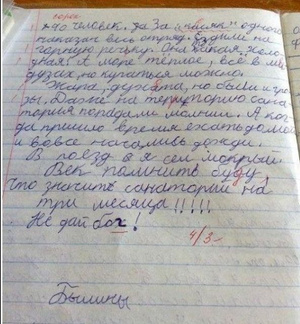 порос
40 человек. да За "
" одного
наказан весь отряд. Ходили на
горную речку. Она такая холо
дная! А море тёплое, всё в ме
дузах, но купаться можно.
Жара, духота, но были и гро
зы. Даже на территорию сана
тория попадали молнии. А ког
да пришло время ехать домой
и вовсе начались дожди.
В поезд я сел мокрый.
Век помнить буду,
что значит санаторий на
три месяца!!!!!
Не дай бог!
4/3-
Былины